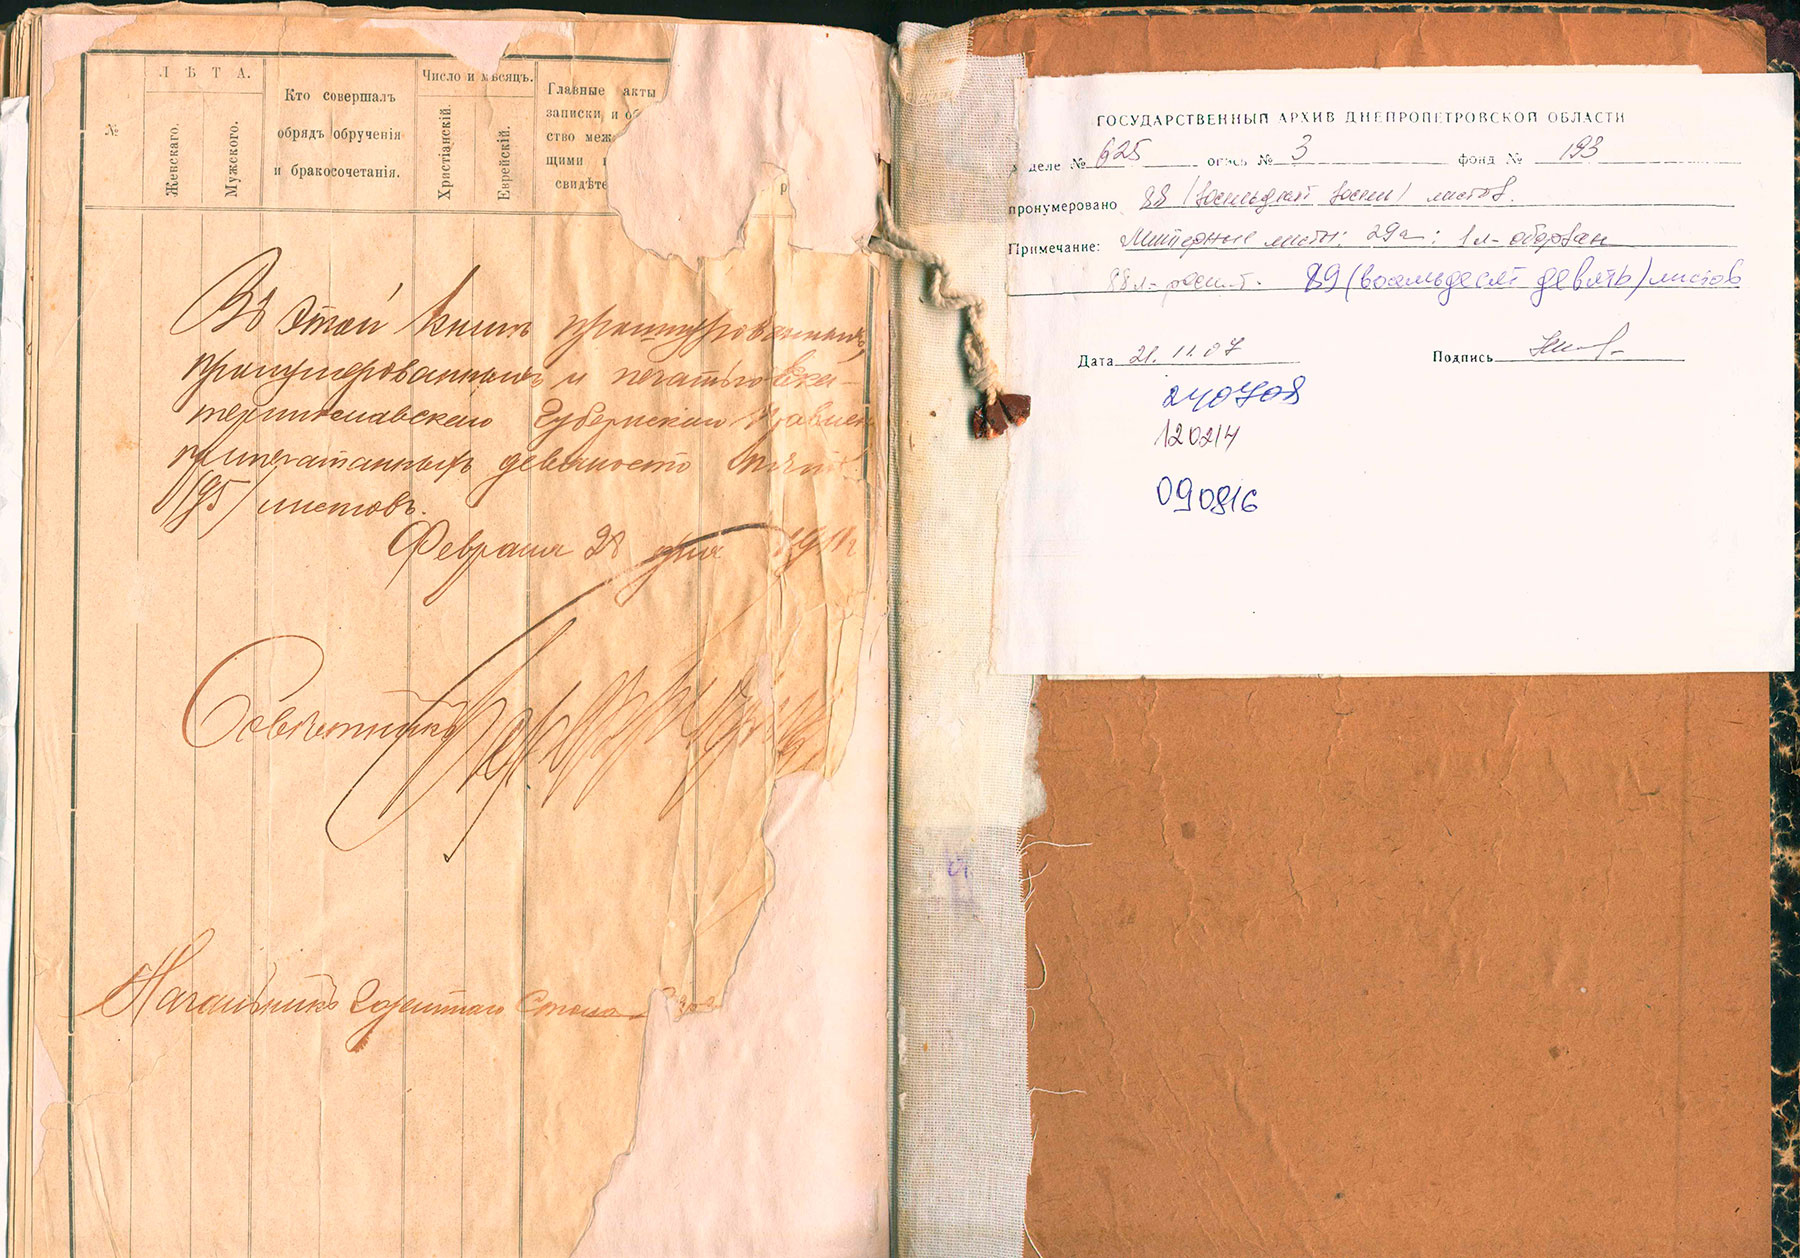 №
ЛѢТА.
Женскаго.
Мужского.
Кто совершалъ
обрядъ обрученія
и бракосочетанія.
Число и мѣсяцъ.
Христіанскій.
Еврейскій.
Главные акты
записки и об
ство меж
щими
свидѣте
Въ этой книгѣ прошнурованныхъ,
пронумерованныхъ и печатью Ека-
теринославскаго Губернскаго Правлен
припечатанныхъ девяносто пять
/95/ листовъ.
Февраля 28 дня 1911 г
Совѣтникъ
Начальникъ Газетнаго Стола
ГОСУДАРСТВЕННЫЙ АРХИВ ДНЕПРОПЕТРОВСКОЙ ОБЛАСТИ
деле № 625 опись № 3 фонд № 193
пронумеровано 88 (восемьдесят восемь) листов.
Примечание: Литерные листы: 29а; 1 л-оборван
88 л- 89 (восемьдесят девять) листов
Дата 21.11.07 Подпись
240708
120214
090816